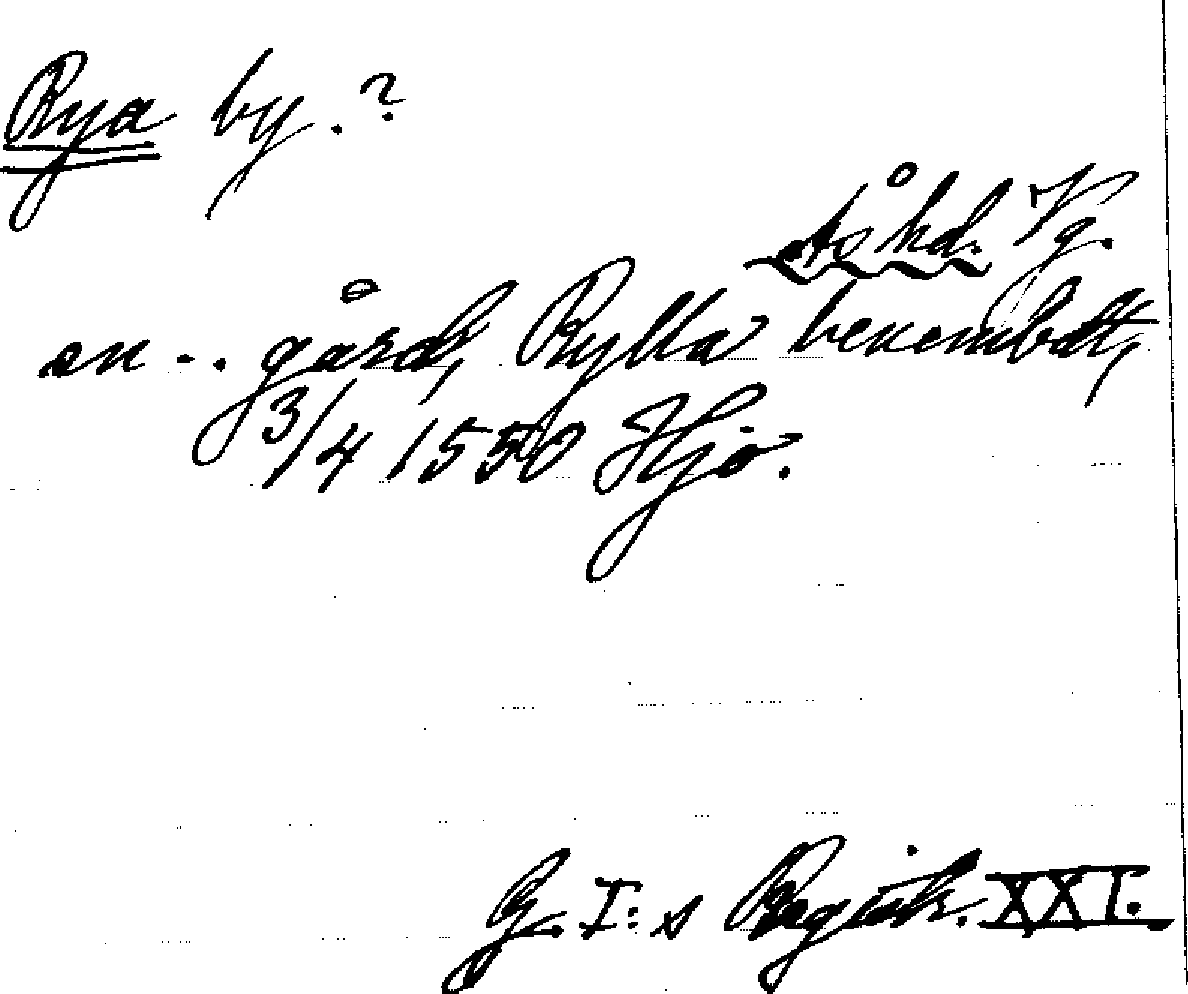 Rya by.?
Ås hd. Vg.
en -. gård, Rylla benembdt,
3/4 1550 Hjo.
G. I:s Registr. XXI.